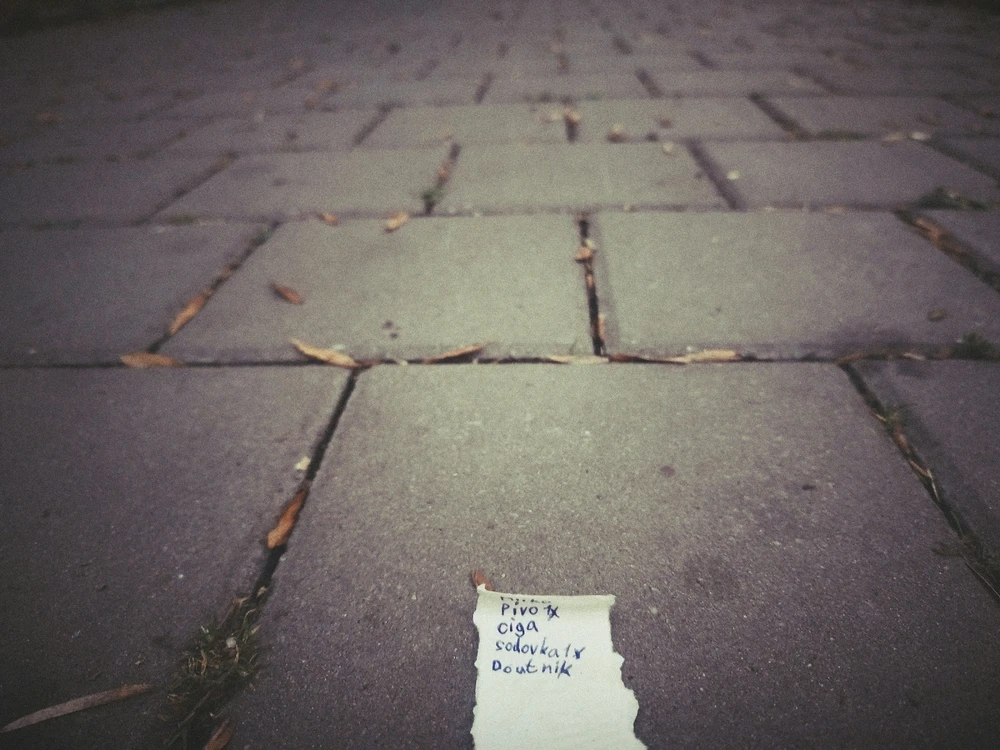 Pivo 1x
ciga
sodovka 1x
Doutnik